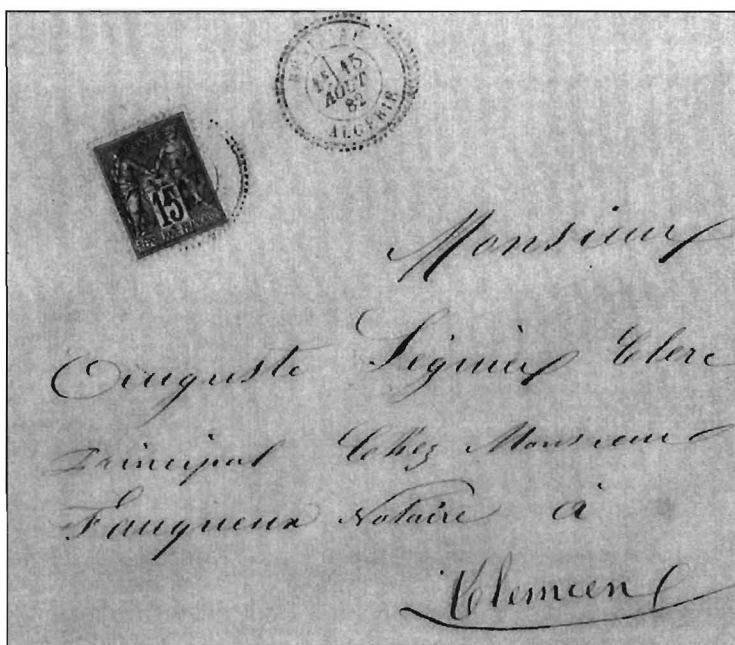 15
AOUT
82
ALGERIE
15
Monsieur
Auguste Clerc
Principal Chez Monsieur
Fauqueux Notaire à
Tlemcen